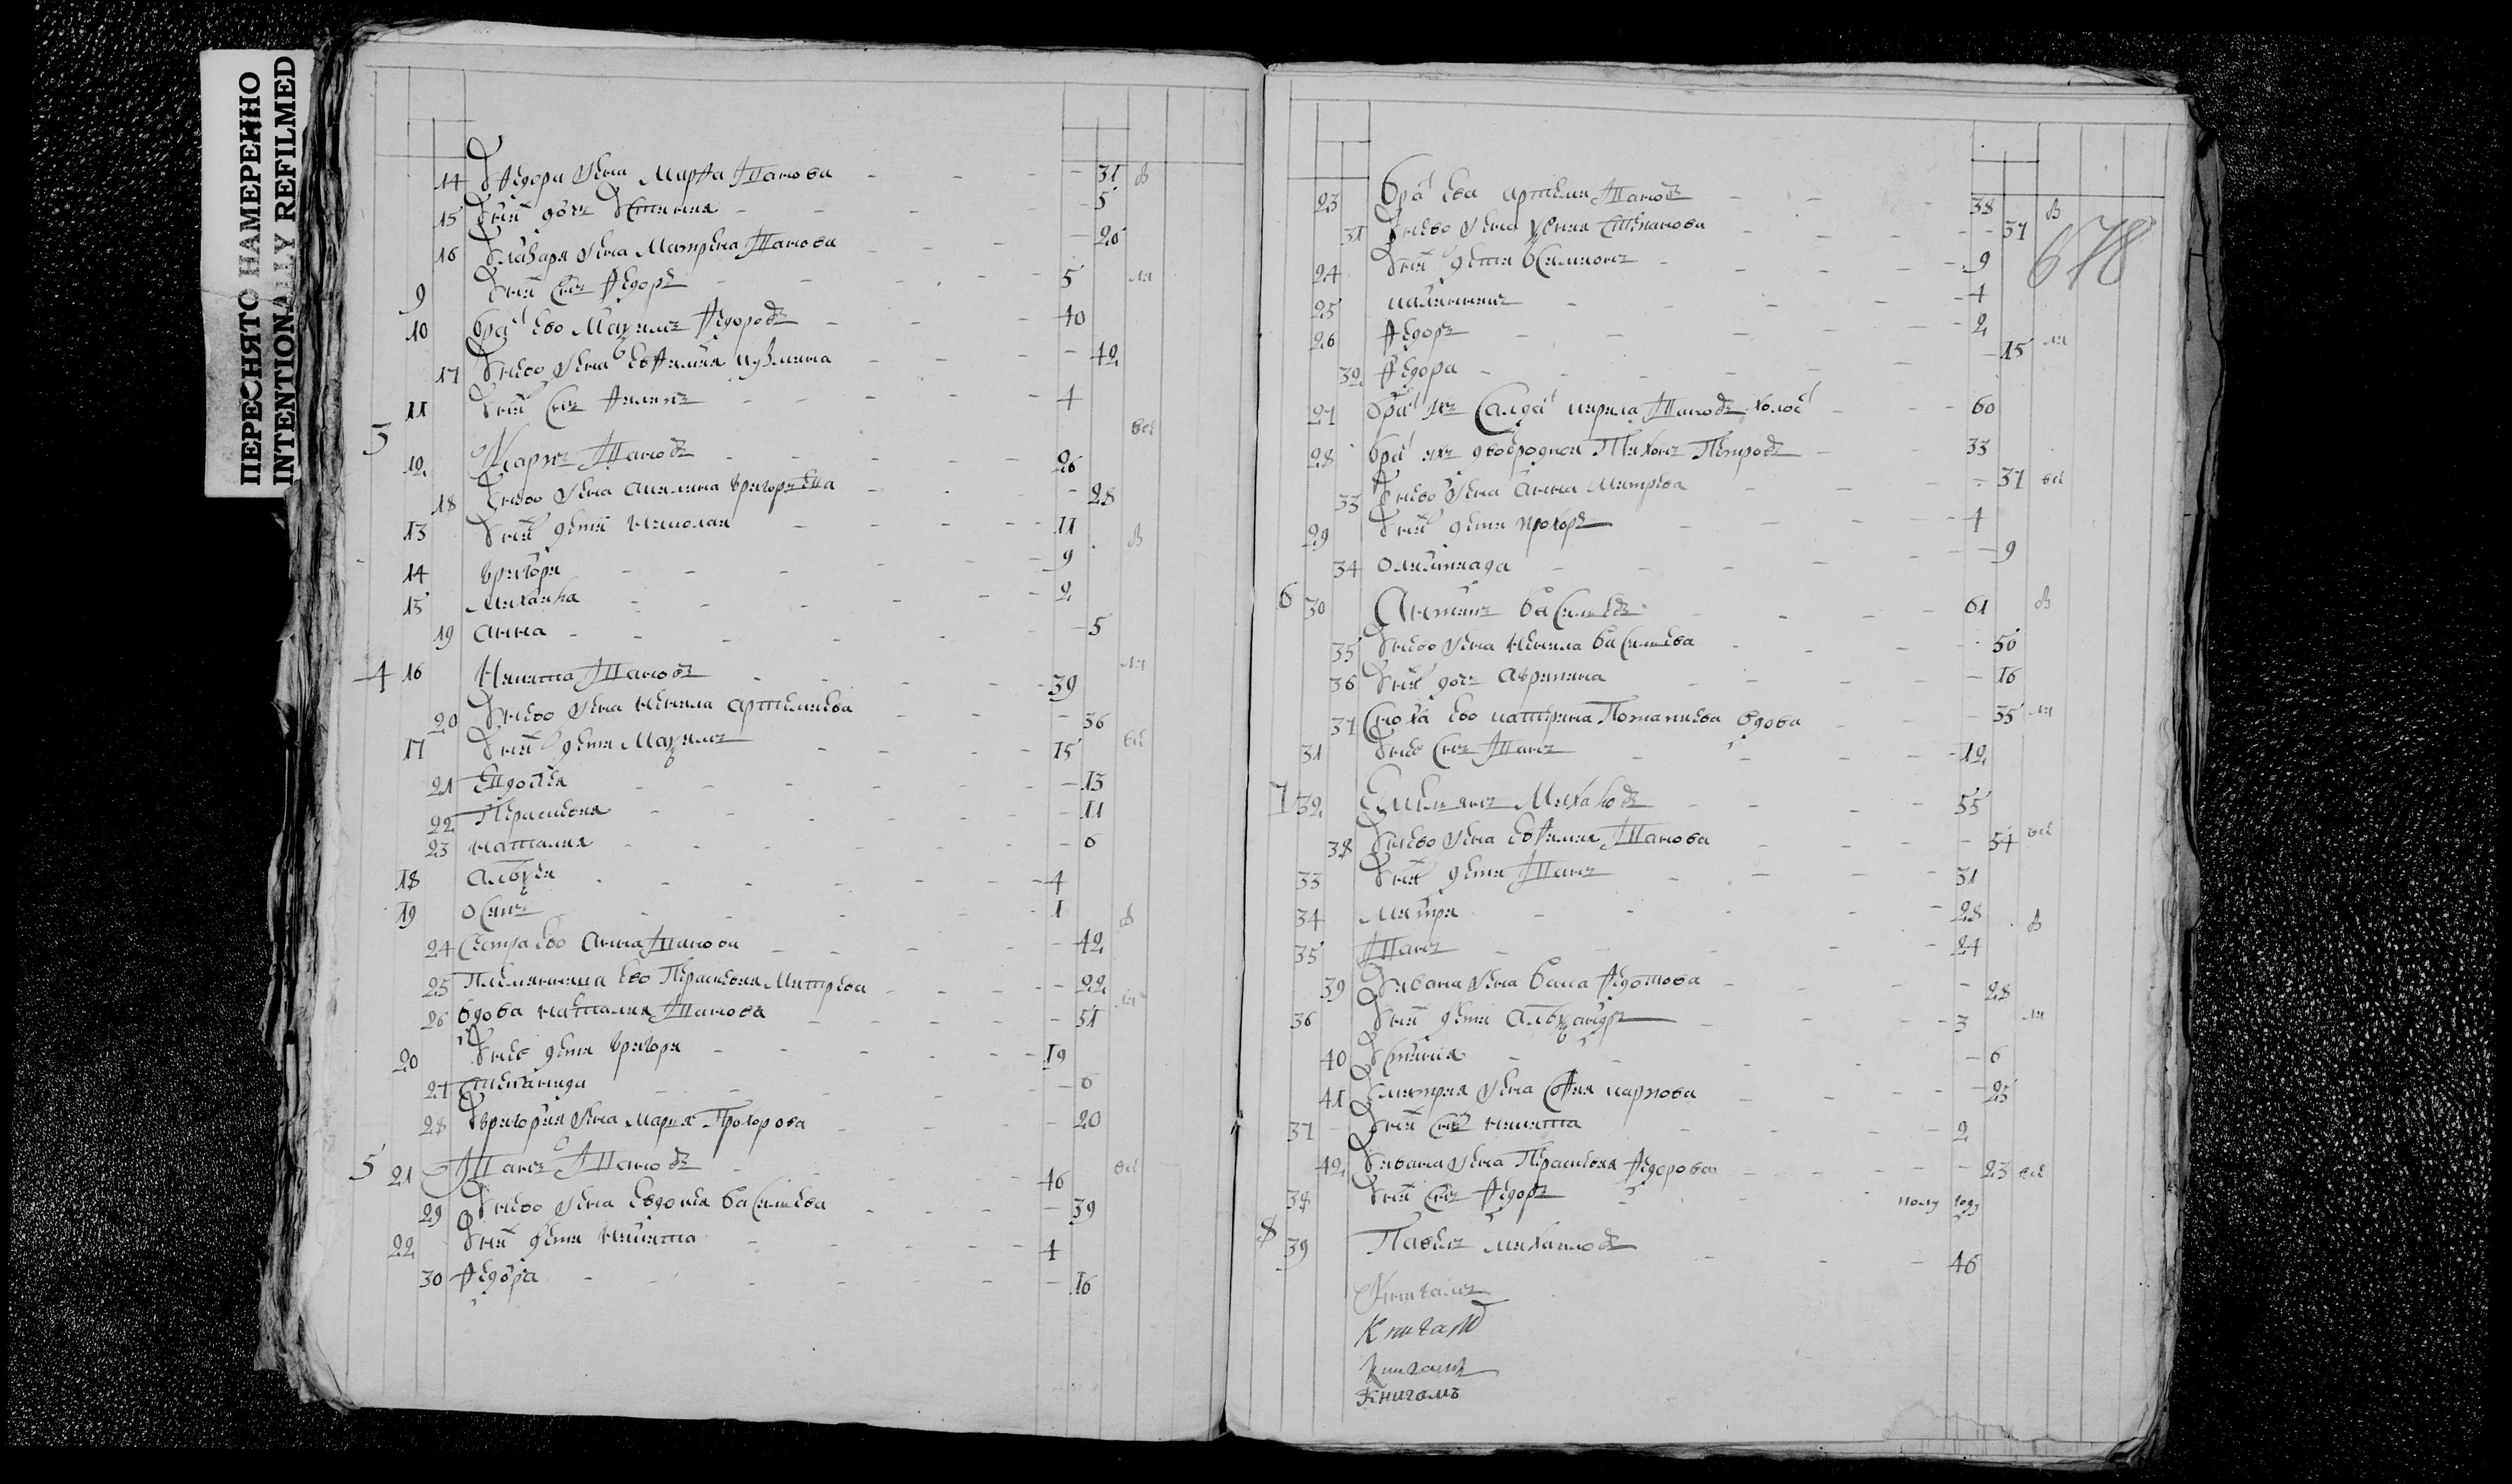 ПЕРЕСНЯТО НАМЕРЕННО
INTENTIONALLY REFILMED
14 Федора жена Марфа Иванова 31
15 У них дочь Устиния 5
16 жена Матрена Иванова 20
9 У них сын Федоръ 5
10 брат ево Федоровъ 40
17 У нево жена Евфимия 42
11 У них сын Филипъ 4
3
12 Карпъ Ивановъ 26
18 У нево жена Акилина Григорьева 28
13 У них дети Николаи 11
14 Григори 9
15 Михаила 2
19 Анна 5
4 16 Никита Ивановъ 39
20 У нево жена Ненила Артемиева 36
17 У них дети 15
21 Евдокея 13
22 Парасковя 11
23 Наталия 6
18 Алексеи 4
19 Осипъ 1
24 Сестра ево Анна Иванова 42
25 Племянница ево Парасковя Митрева 22
26 вдова Наталия Иванова 51
20 У нее дети Григори 19
27 Степанида 6
28 У Григория жена Мария Прохорова 20
5 21 Иванъ Ивановъ 46
29 У нево жена Евдокия Василиева 39
22 У них дети Никита 4
30 Федора 16
678
23 брат ево Артемеи Ивановъ 38
31 У нево жена Степанова 37
24 У них дети 9
25 4
26 Федоръ 2
32 Федора 15
27 брат их салдат Кирила Ивановъ холос 60
28 брат их двоюродной Тихонъ Петровъ 33
33 У нево жена Анна Митрева 37
29 У них дети Прохоръ 4
34 Олимпиада 9
6 30 Антипъ Василиевъ 61
35 У нево жена Ненила Василиева 50
36 У них дочь Агрипина 16
37 Сноха ево Катерина Потапиева вдова 35
31 У нее сын Иванъ 12
7 32 Емелиянъ Михаиловъ 55
38 У нево жена Евфимия Иванова 54
33 У них дети Иванъ 31
34 Митри 28
35 Иванъ 24
39 У Ивана жена Васса Федотова 28
36 У них дети Александръ 3
40 Устиния 6
41 У Митрия жена София Карпова 25
37 У них сын Никита 2
42 У Ивана жена Парасковя Федорова 23
38 У них сын Федоръ полу году
8 39 Павелъ Михаиловъ 46
Книгамъ
Книгамъ
Книгамъ
Книгамъ